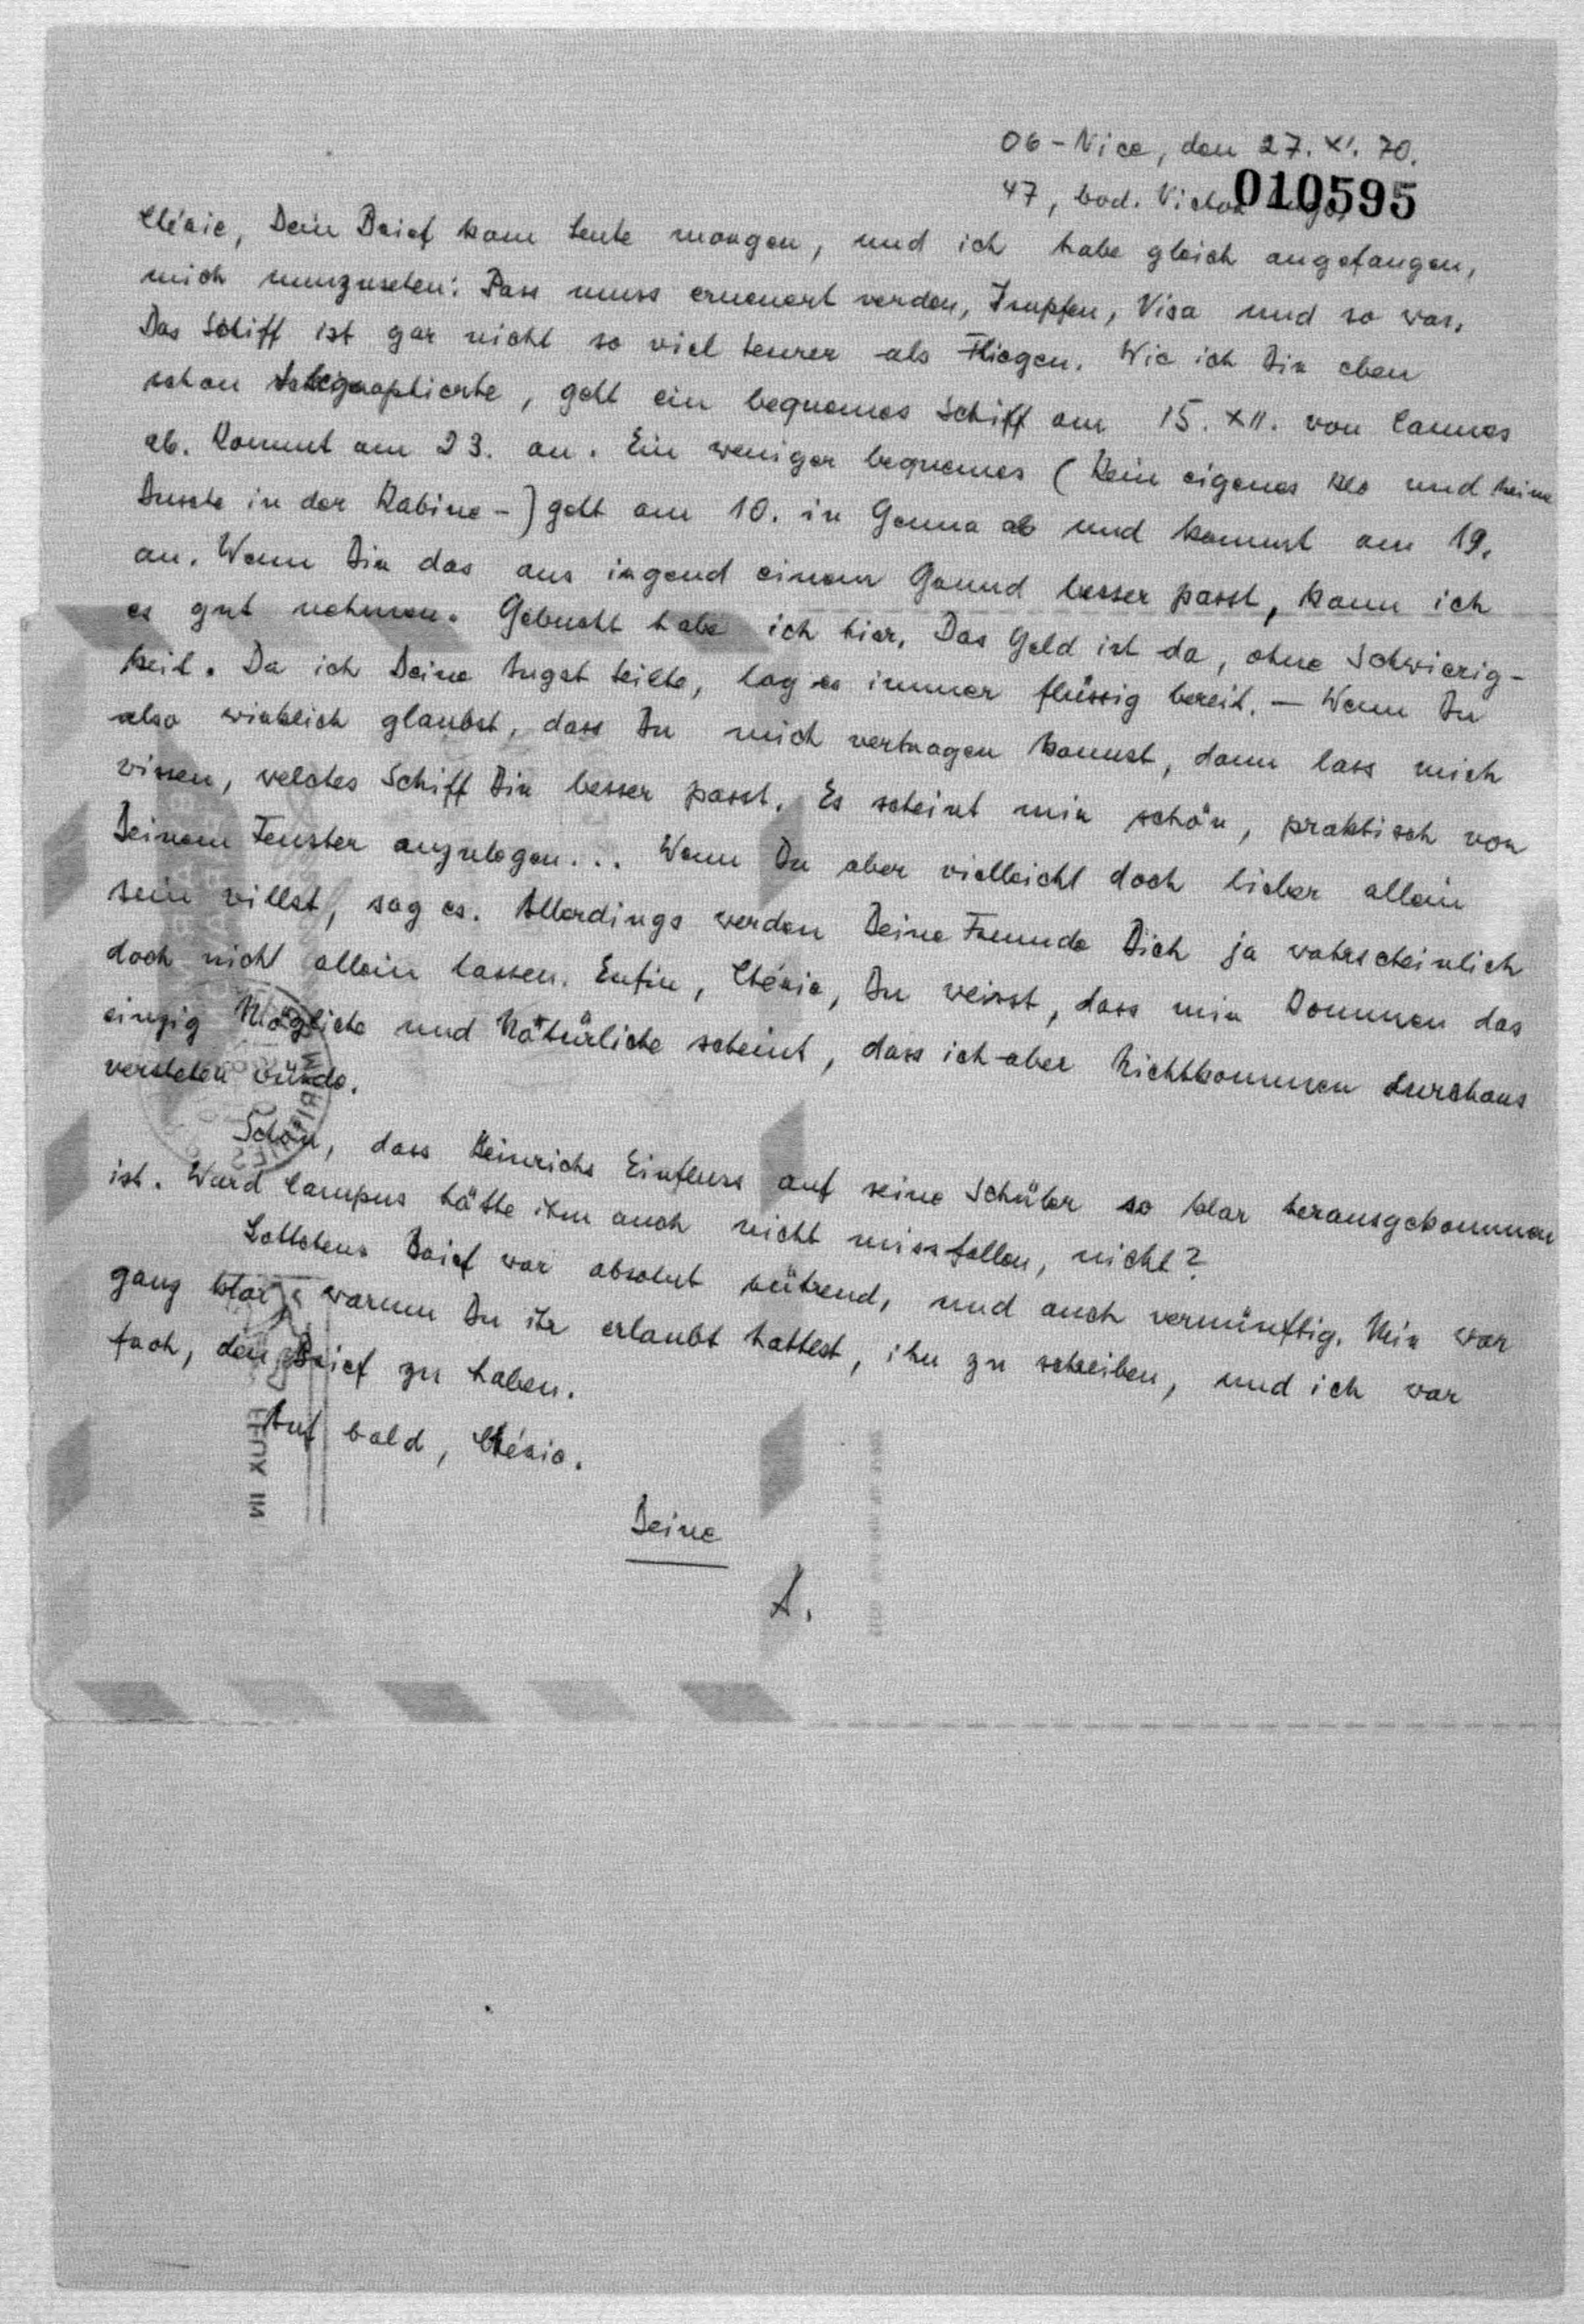 06 - Nice, den 27. XI. 70.
47, bvd. Victor Hugo,
010595
Chérie, Dein Brief kam heute morgen, und ich habe gleich angefangen,
mich umzusehen: Pass muss erneuert werden, Impfen, Visa und so was.
Das Schiff ist gar nicht so viel teurer als Fliegen. Wie ich Dir eben
schon telegraphierte, geht ein bequemes Schiff am 15. XII. von Cannes
ab. Kommt am 23. an. Ein weniger bequemes (kein eigenes Klo und keine
Dusche in der Kabine -) geht am 10. in Genua ab und kommt am 19.
an. Wenn Dir das aus irgend einem Grund besser passt, kann ich
es gut nehmen. Gebucht habe ich hier. Das Geld ist da, ohne Schwierig-
keit. Da ich Deine Angst teilte, lag es immer flüssig bereit. — Wenn Du
also wirklich glaubst, dass Du mich vertragen kannst, dann lass mich
wissen, welches Schiff Dir besser passt. Es scheint mir schön, praktisch vor
Deinem Fenster anzulegen... Wenn Du aber vielleicht doch lieber allein
sein willst, sag es. Allerdings werden Deine Freunde Dich ja wahrscheinlich
doch nicht allein lassen. Enfin, Chérie, Du weisst, dass mir Kommen das
einzig Mögliche und Natürliche scheint, dass ich aber Nichtkommen durchaus
verstehen würde.
Schön, dass Heinrichs Einfluss auf seine Schüler so klar herausgekommen
ist. Ward Campus hätte ihm auch nicht missfallen, nicht?
Lottchens Brief war absolut rührend, und auch vernünftig. Mir war
ganz klar, warum Du ihr erlaubt hattest, ihn zu schreiben, und ich war
froh, den Brief zu haben.
Auf bald, Chérie.
Deine
A.